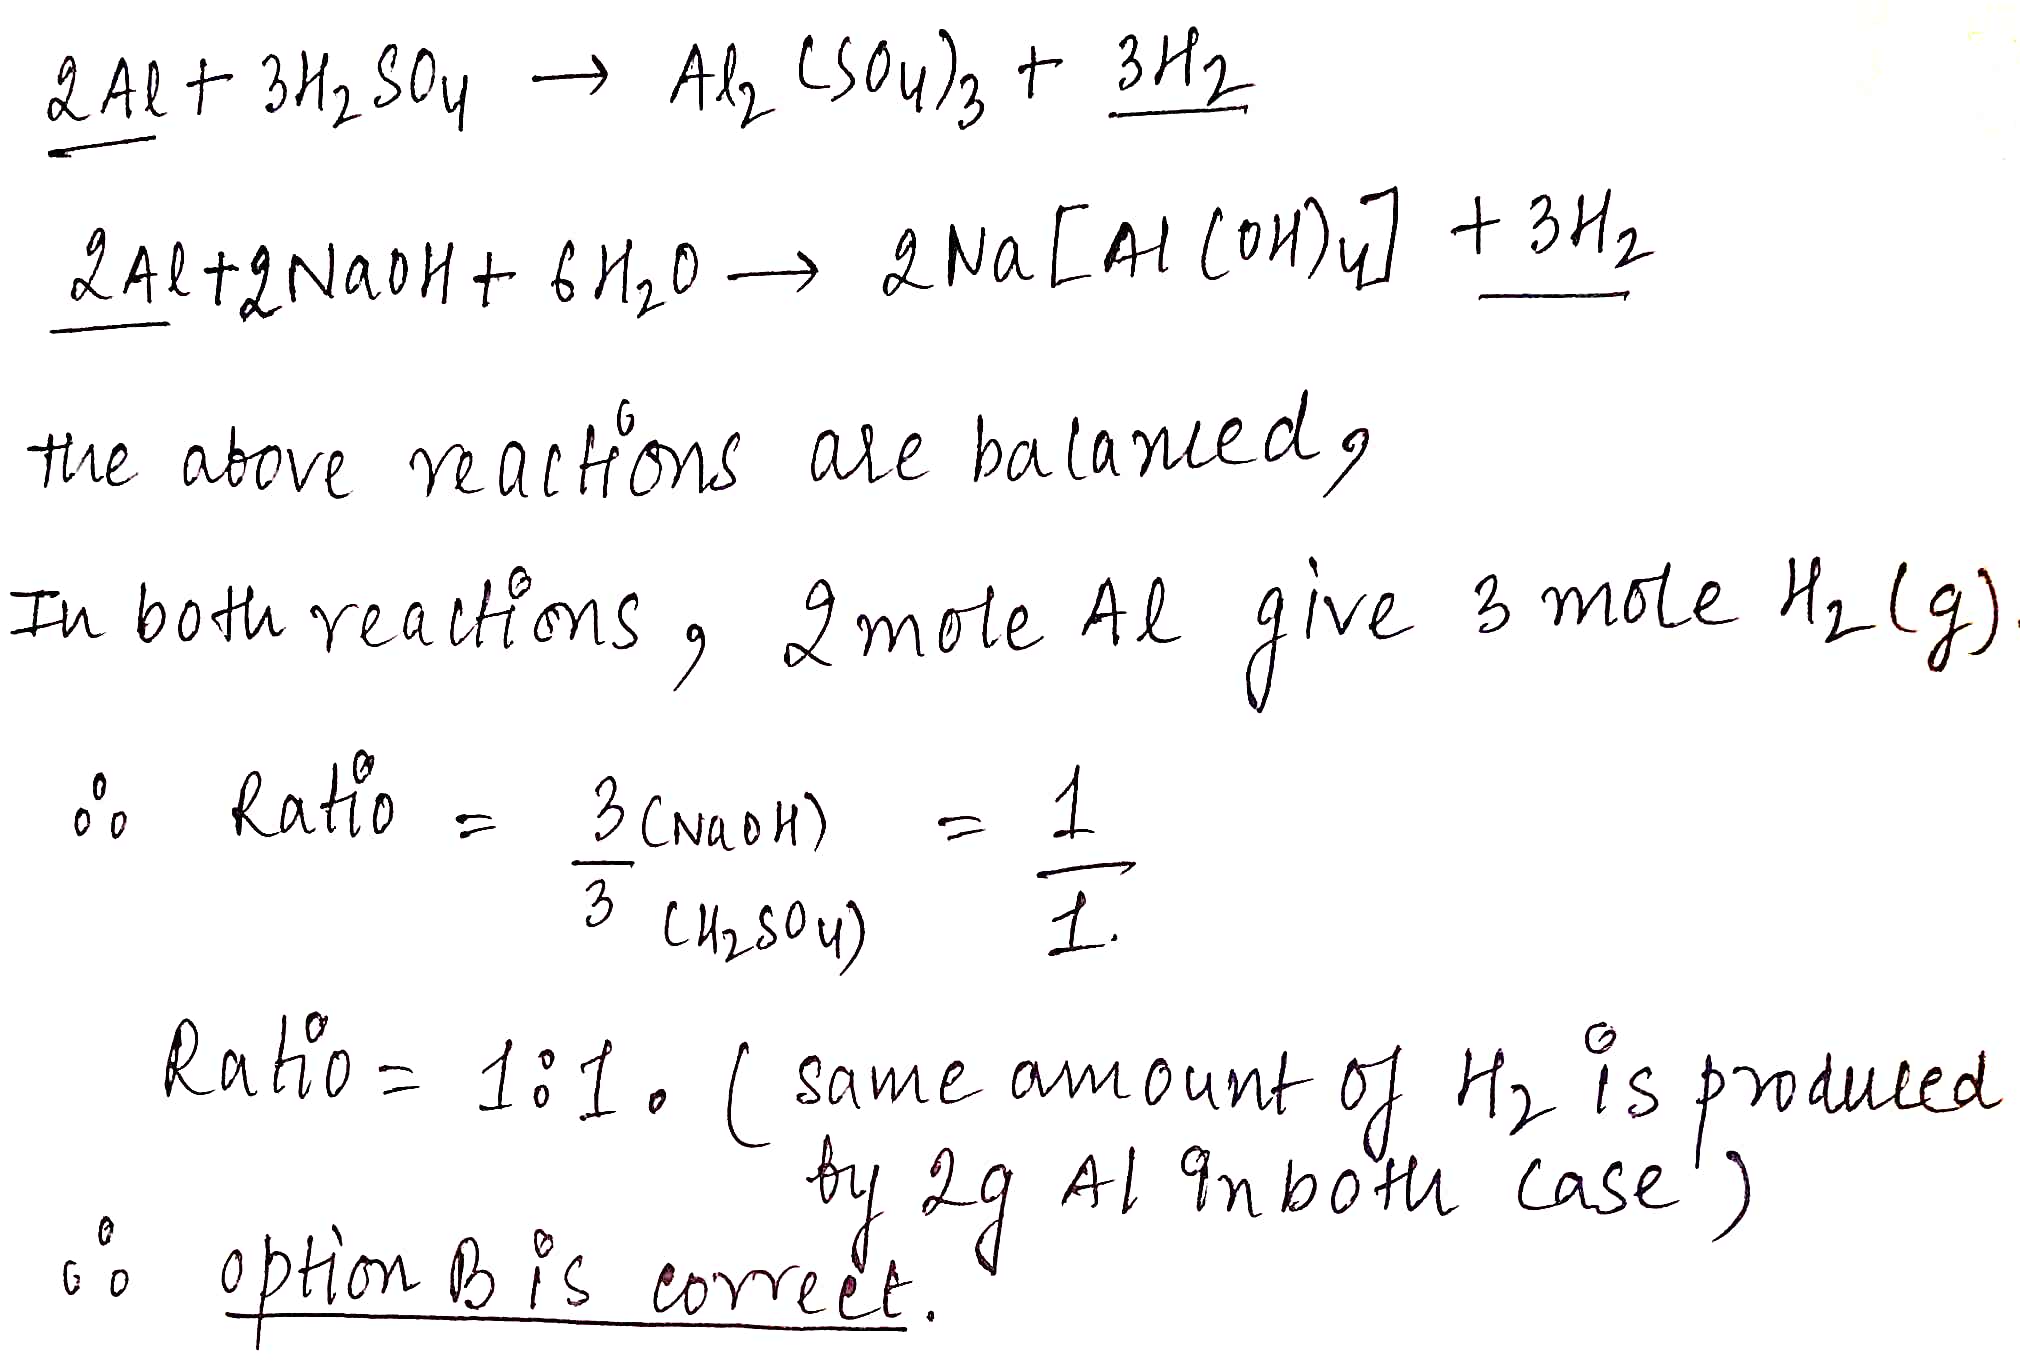 2Al + 3H₂SO₄ → Al₂(SO₄)₃ + 3H₂
2Al + 2NaOH + 6H₂O → 2Na[Al(OH)₄] + 3H₂
the above reactions are balanced,
In both reactions, 2 mole Al give 3 mole H₂(g).
∴ Ratio = 3 (NaOH) / 3 (H₂SO₄) = 1 / 1.
Ratio = 1:1. (same amount of H₂ is produced
by 2g Al in both case)
∴ option B is correct.